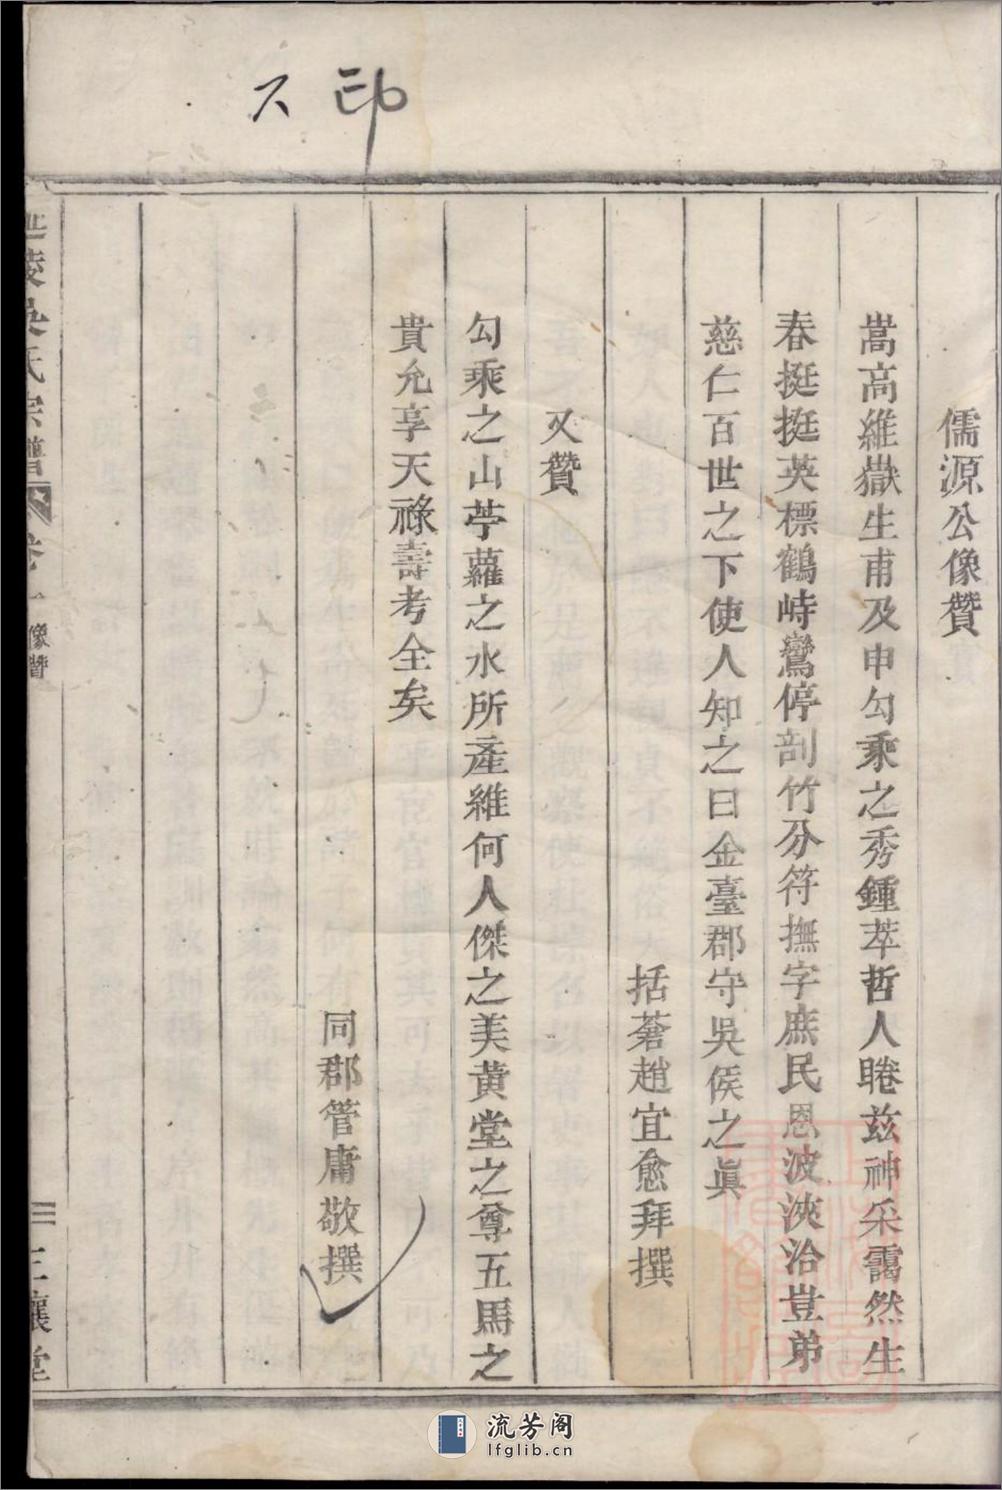 不印
儒源公像贊
嵩高維嶽生甫及申勾乘之秀鍾萃哲人睠玆神采靄然生
春挺挺英標鶴峙鸞停剖竹分符撫字庶民恩波浹洽豈弟
慈仁百世之下使人知之曰金臺郡守吳侯之眞
括蒼趙宜愈拜撰
又贊
勾乘之山苧蘿之水所產維何人傑之美黃堂之尊五馬之
貴允享天祿壽考全矣
同郡管庸敬撰
陵吳氏宗譜 卷一 像贊 三 三讓堂
流芳阁
lfglib.cn